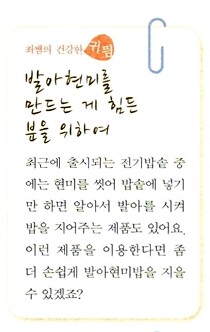 죄맨의 건강한 귀띔
발아현미를
만드는 게 힘든
분을 위하여
최근에 출시되는 전기밥솥 중
에는 현미를 씻어 밥솥에 넣기
만 하면 알아서 발아를 시켜
밥을 지어주는 제품도 있어요.
이런 제품을 이용한다면 좀
더 손쉽게 발아현미밥을 지을
수 있겠죠?